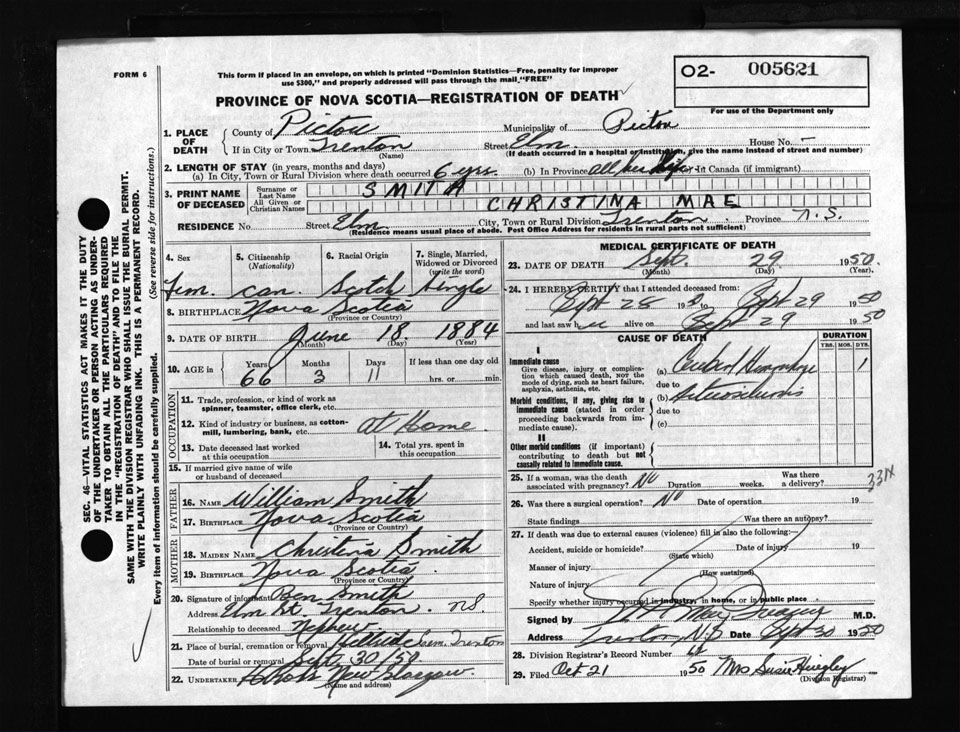 FORM 6
This form if placed in an envelope, on which is printed "Dominion Statistics—Free, penalty for improper
use $300," and properly addressed will pass through the mail "FREE"
O2- 005621
For use of the Department only
PROVINCE OF NOVA SCOTIA—REGISTRATION OF DEATH
1. PLACE OF DEATH
County of Pictou Municipality of Pictou
If in City or Town Trenton (Name) Street Elm House No. -
(If death occurred in a hospital or institution, give the name instead of street and number)
2. LENGTH OF STAY (in years, months and days)
(a) In City, Town or Rural Division where death occurred 6 yrs. (b) In Province all her life (c) In Canada (if immigrant)
3. PRINT NAME OF DECEASED
Surname or Last Name SMITH
All Given or Christian Names CHRISTINA MAE
RESIDENCE No. Street Elm City, Town or Rural Division Trenton Province N.S.
(Residence means usual place of abode. Post Office Address for residents in rural parts not sufficient)
4. Sex
Fem.
5. Citizenship (Nationality)
Can.
6. Racial Origin
Scotch
7. Single, Married, Widowed or Divorced (write the word)
Single
8. BIRTHPLACE Nova Scotia
(Province or Country)
9. DATE OF BIRTH June 18 1884
(Month) (Day) (Year)
10. AGE in Years Months Days If less than one day old
66 3 11 hrs. or min.
OCCUPATION
11. Trade, profession, or kind of work as
spinner, teamster, office clerk, etc.
12. Kind of industry or business, as cotton-
mill, lumbering, bank, etc. At Home
13. Date deceased last worked
at this occupation
14. Total yrs. spent in
this occupation
15. If married give name of wife
or husband of deceased
FATHER
16. Name William Smith
17. Birthplace Nova Scotia
(Province or Country)
MOTHER
18. Maiden Name Christina Smith
19. Birthplace Nova Scotia.
(Province or Country)
20. Signature of informant Ben Smith
Address Elm St. Trenton. N.S.
Relationship to deceased Nephew
21. Place of burial, cremation or removal Hillside Cem. Trenton
Date of burial or removal Sept. 30/50
22. UNDERTAKER New Glasgow.
(Name and address)
MEDICAL CERTIFICATE OF DEATH
23. DATE OF DEATH Sept. 29 1950.
(Month) (Day) (Year)
24. I HEREBY CERTIFY that I attended deceased from:
Sept 28 1950 to Sept 29 1950
and last saw her alive on Sept 29 1950
CAUSE OF DEATH
DURATION
YRS. MOS. DYS.
I
Immediate cause
Give disease, injury or complica-
tion which caused death, NOT the
mode of dying, such as heart failure,
asphyxia, asthenia, etc.
(a) Cerebral Hemorrhage 1
due to
Morbid conditions, if any, giving rise to
immediate cause (stated in order
proceeding backwards from im-
mediate cause).
(b) Arteriosclerosis
due to
(c)
II
Other morbid conditions (if important)
contributing to death but not
causally related to immediate cause.
331X
25. If a woman, was the death
associated with pregnancy? No Duration weeks. Was there a delivery?
26. Was there a surgical operation? No Date of operation 19
State findings Was there an autopsy?
27. If death was due to external causes (violence) fill in also the following:
Accident, suicide or homicide? Date of injury 19
(State which)
Manner of injury
(How sustained)
Nature of injury
Specify whether injury occurred in industry, in home, or in public place
Signed by M.D.
Address Trenton, N.S Date Sept 30 1950
28. Division Registrar's Record Number
29. Filed Oct 21 1950 Mrs Susie
(Division Registrar)
SEC. 46—VITAL STATISTICS ACT MAKES IT THE DUTY
OF THE UNDERTAKER OR PERSON ACTING AS UNDER-
TAKER TO OBTAIN ALL THE PARTICULARS REQUIRED
IN THE "REGISTRATION OF DEATH" AND TO FILE THE
SAME WITH THE DIVISION REGISTRAR WHO SHALL ISSUE THE BURIAL PERMIT.
WRITE PLAINLY WITH UNFADING INK. THIS IS A PERMANENT RECORD.
Every item of information should be carefully supplied. (See reverse side for instructions.)